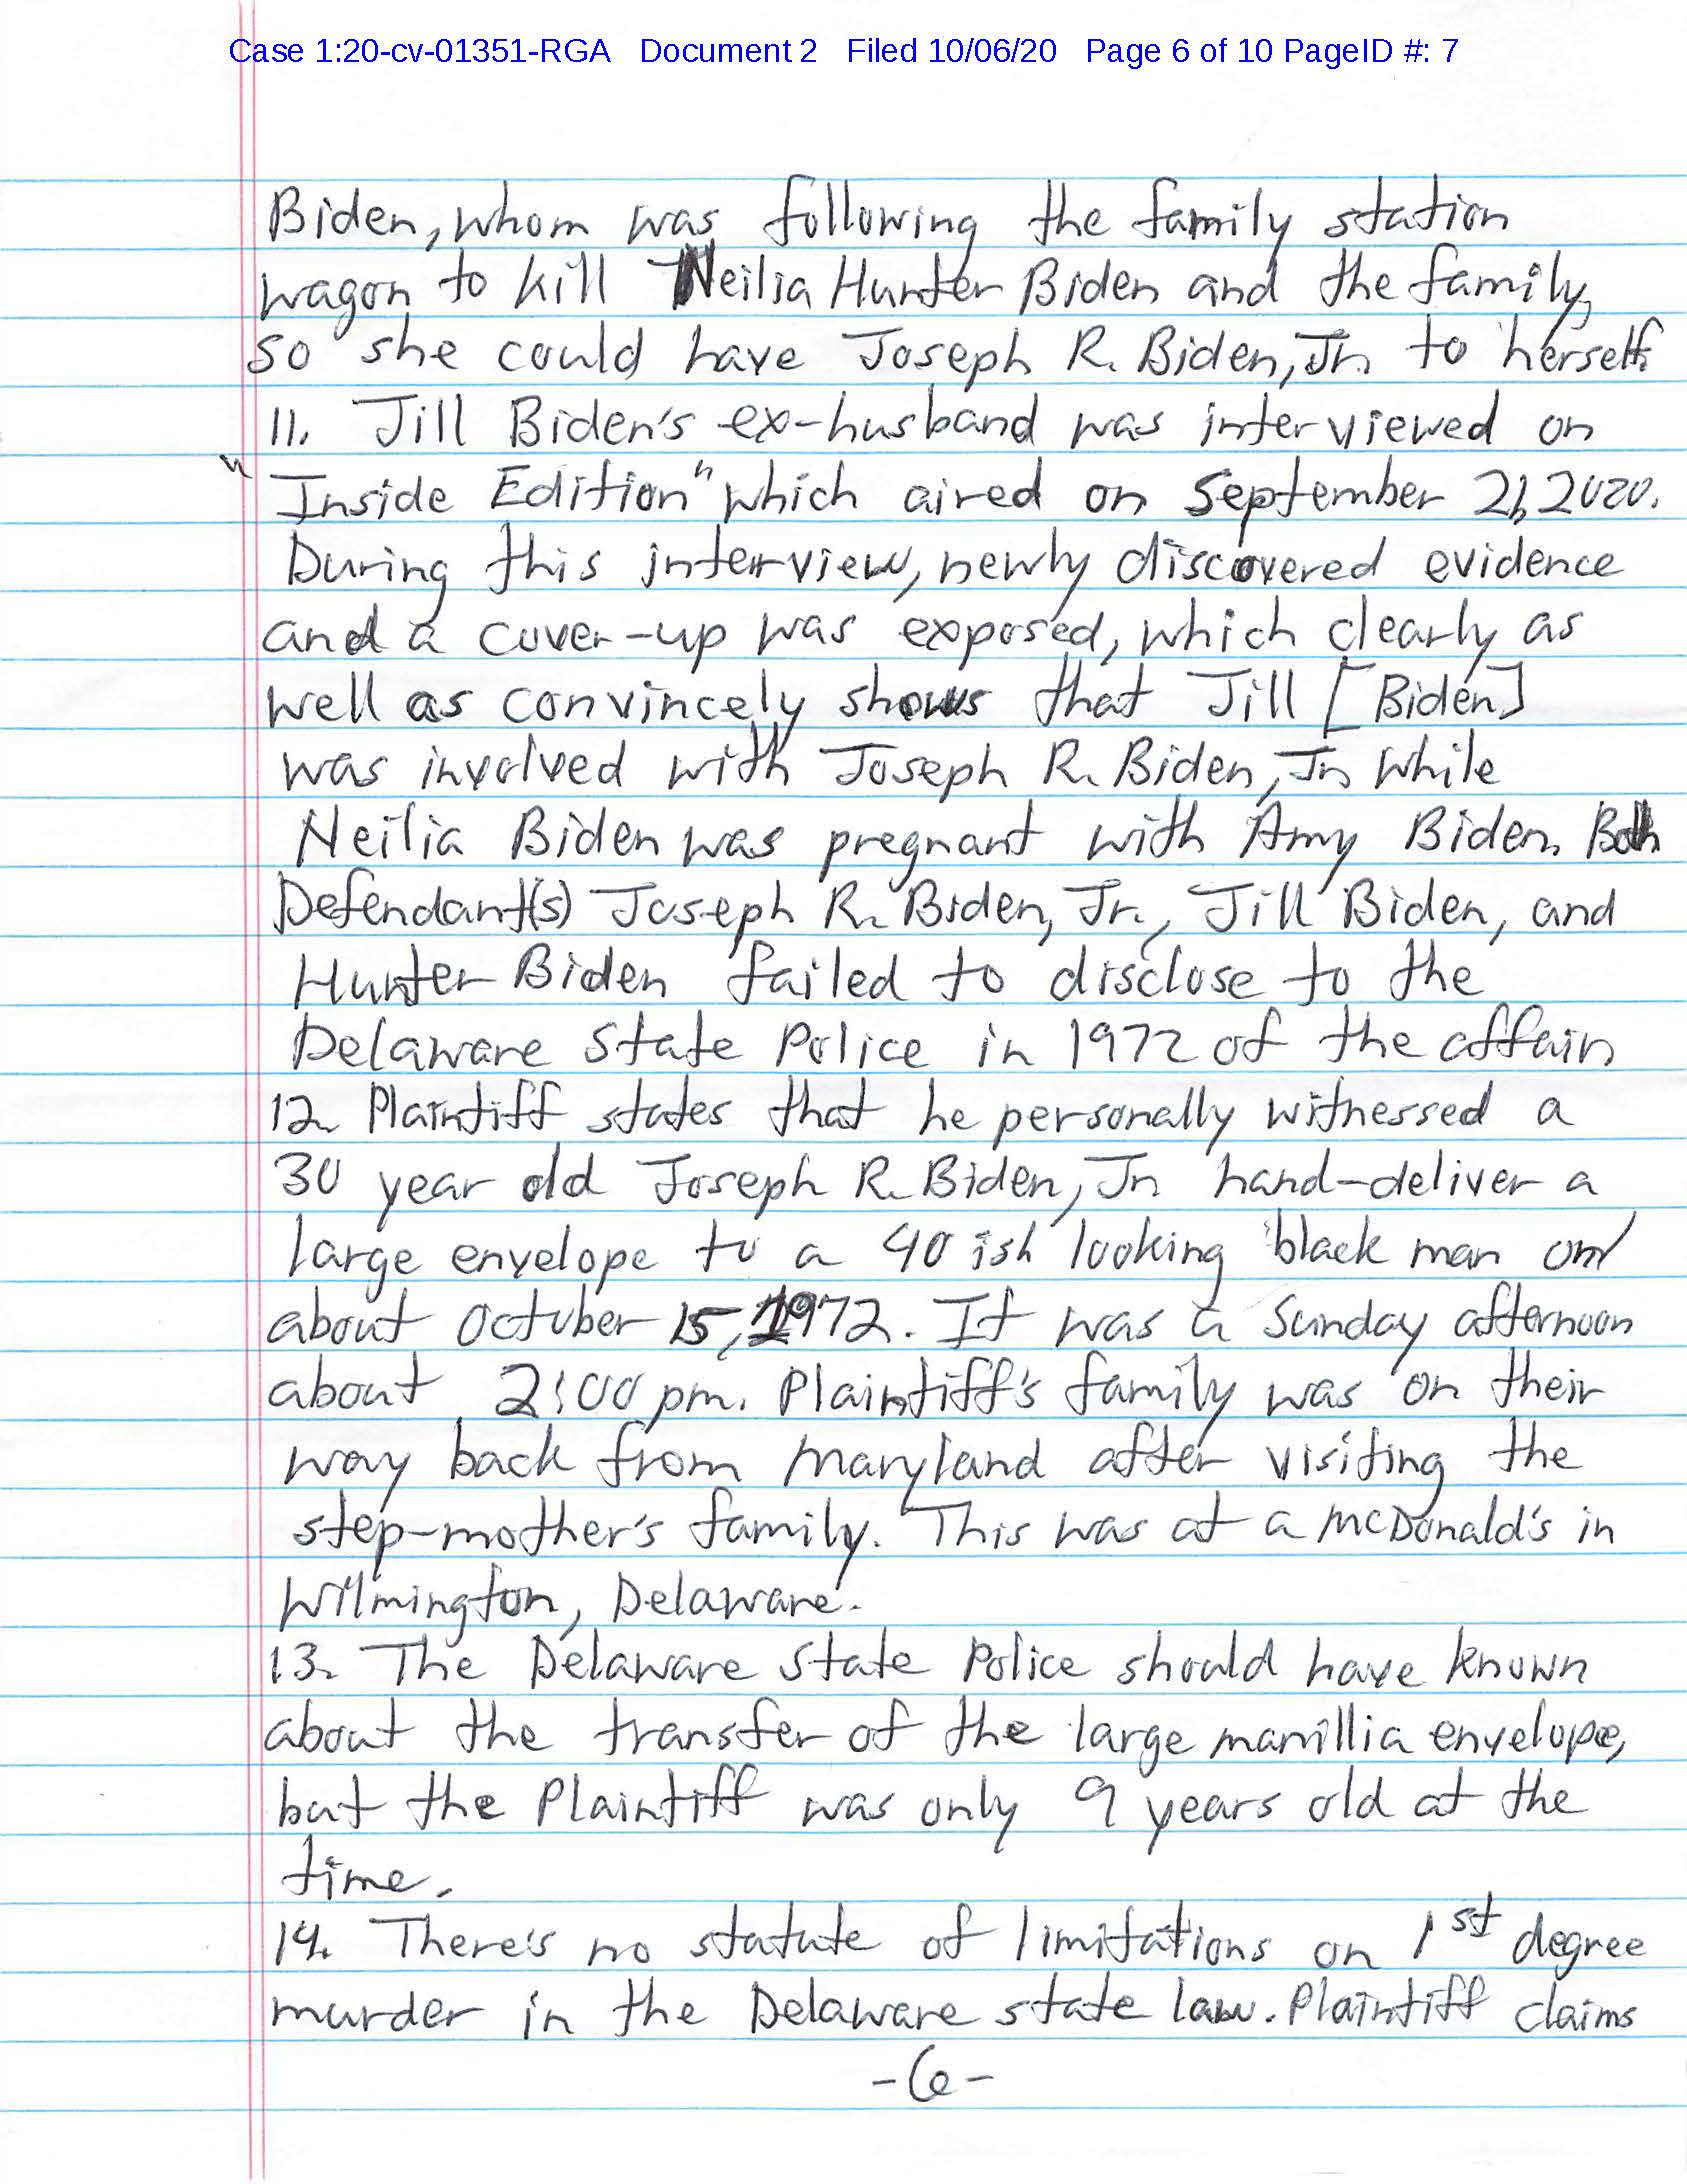 Case 1:20-cv-01351-RGA Document 2 Filed 10/06/20 Page 6 of 10 PageID #: 7
Biden, whom was following the family station
wagon to kill Neilia Hunter Biden and the family,
so she could have Joseph R. Biden, Jr. to herself.
11. Jill Biden's ex-husband was interviewed on
"Inside Edition" which aired on September 21, 2020.
During this interview, newly discovered evidence
and a cover-up was exposed, which clearly as
well as convincely shows that Jill [Biden]
was involved with Joseph R. Biden, Jr. while
Neilia Biden was pregnant with Amy Biden. Both
Defendant(s) Joseph R. Biden, Jr., Jill Biden, and
Hunter Biden failed to disclose to the
Delaware State Police in 1972 of the affair.
12. Plaintiff states that he personally witnessed a
30 year old Joseph R. Biden, Jr. hand-deliver a
large envelope to a 40 ish looking black man on/
about October 15, 1972. It was a Sunday afternoon
about 2:00 pm. Plaintiff's family was on their
way back from Maryland after visiting the
step-mother's family. This was at a McDonald's in
Wilmington, Delaware.
13. The Delaware State Police should have known
about the transfer of the large manillia envelope,
but the Plaintiff was only 9 years old at the
time.
14. There's no statute of limitations on 1st degree
murder in the Delaware state law. Plaintiff claims
-6-